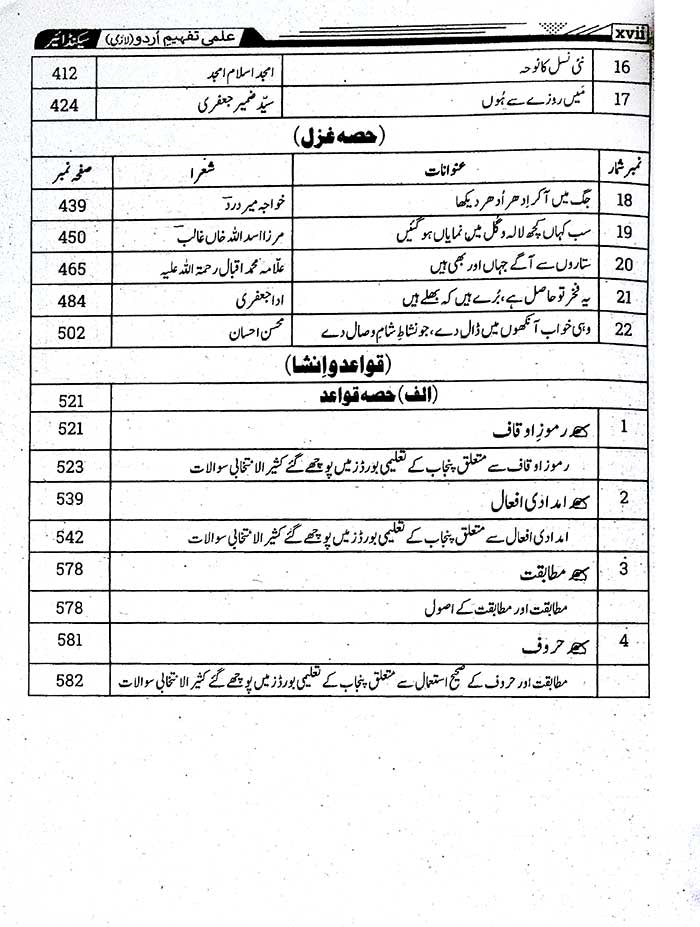 xvii علمی تفہیم اُردو (لازمی) سیکنڈ ائیر
16 نئی نسل کا نوحہ امجد اسلام امجد 412
17 مَیں روزے سے ہُوں سیّد ضمیر جعفری 424
(حصہ غزل)
نمبر شمار عنوانات شعرا صفحہ نمبر
18 جگ میں آ کر اِدھر اُدھر دیکھا خواجہ میر درد 439
19 سب کہاں کچھ لالہ و گُل میں نمایاں ہو گئیں مرزا اسد اللہ خاں غالب 450
20 ستاروں سے آگے جہاں اور بھی ہیں علّامہ محمد اقبال رحمۃ اللہ علیہ 465
21 یہ فخر تو حاصل ہے، بُرے ہیں کہ بھلے ہیں ادا جعفری 484
22 وہی خواب آنکھوں میں ڈال دے، جو نشاطِ شامِ وصال دے محسن احسان 502
(قواعد و اِنشا)
(الف) حصہ قواعد 521
1 رموزِ اوقاف 521
رموزِ اوقاف سے متعلق پنجاب کے تعلیمی بورڈز میں پوچھے گئے کثیر الانتخابی سوالات 523
2 امدادی افعال 539
امدادی افعال سے متعلق پنجاب کے تعلیمی بورڈز میں پوچھے گئے کثیر الانتخابی سوالات 542
3 مطابقت 578
مطابقت اور مطابقت کے اصول 578
4 حروف 581
مطابقت اور حروف کے صحیح استعمال سے متعلق پنجاب کے تعلیمی بورڈز میں پوچھے گئے کثیر الانتخابی سوالات 582